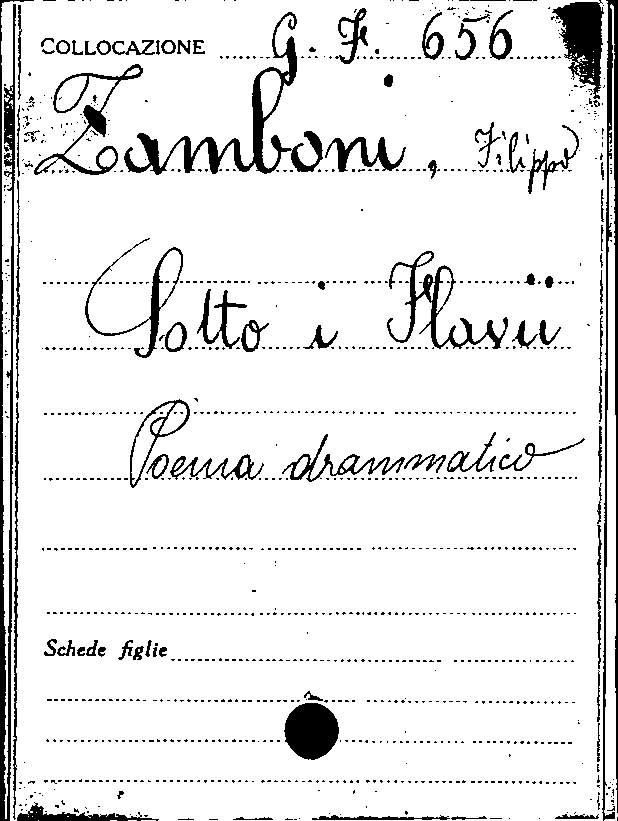 COLLOCAZIONE G. F. 656
Zamboni, Filippo
Sotto i Flavii
Poema drammatico
Schede figlie